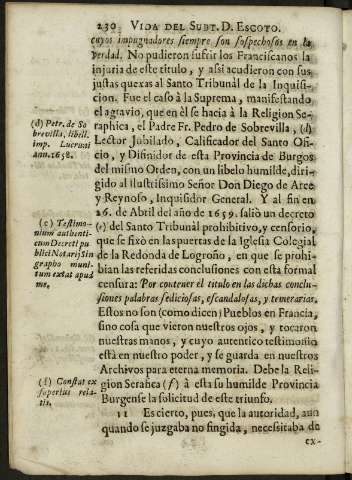 230 VIDA DEL SUBT. D. ESCOTO.
cuyos impugnadores siempre son sospechosos en la
verdad. No pudieron sufrir los Franciscanos la
injuria de este titulo, y assi acudieron con sus
justas quexas al Santo Tribunal de la Inquisi-
cion. Fue el caso à la Suprema, manifestando
el agravio, que en èl se hacia à la Religion Se-
raphica, el Padre Fr. Pedro de Sobrevilla, (d)
Lector Jubilado, Calificador del Santo Ofi-
cio, y Difinidor de esta Provincia de Burgos
del mismo Orden, con un libelo humilde, diri-
gido al Ilustrissimo Señor Don Diego de Arce
y Reynoso, Inquisidor General. Y al fin en
26. de Abril del año de 1659. saliò un decreto
(e) del Santo Tribunal prohibitivo, y censorio,
que se fixò en las puertas de la Iglesia Colegial
de la Redonda de Logroño, en que se prohi-
bian las referidas conclusiones con esta formal
censura: Por contener el titulo en las dichas conclu-
siones palabras sediciosas, escandalosas, y temerarias.
Estos no son (como dicen) Pueblos en Francia,
sino cosa que vieron nuestros ojos, y tocaron
nuestras manos, y cuyo autentico testimonio
està en nuestro poder, y se guarda en nuestros
Archivos para eterna memoria. Debe la Reli-
gion Serafica (f) à esta su humilde Provincia
Burgense la solicitud de este triunfo.
11 Es cierto, pues, que la autoridad, aun
quando se juzgaba no fingida, necessitaba de
ex-
(d) Petr. de So
brevilla, libell.
imp. Lucronii
ann. 1658.
(e) Testimo-
nium authenti-
cum Decreti pu
blici Notarij Sin
grapho muni-
tum extat apud
me.
(f) Constat ex
superius rela-
tis.